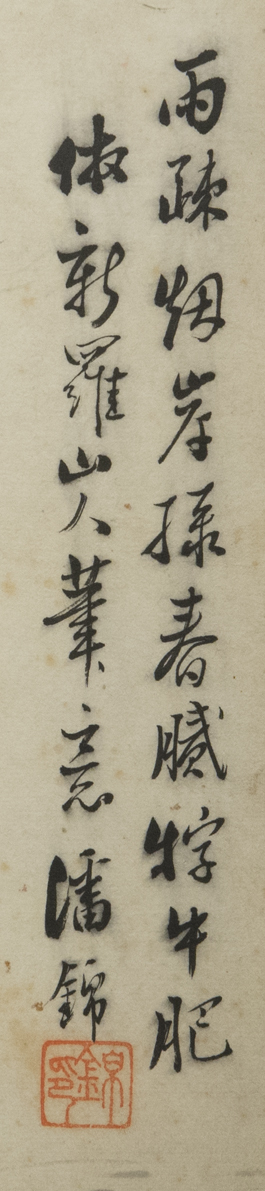 雨疎烟岸緑春膩牸牛肥
倣新羅山人筆意潘錦
錦印